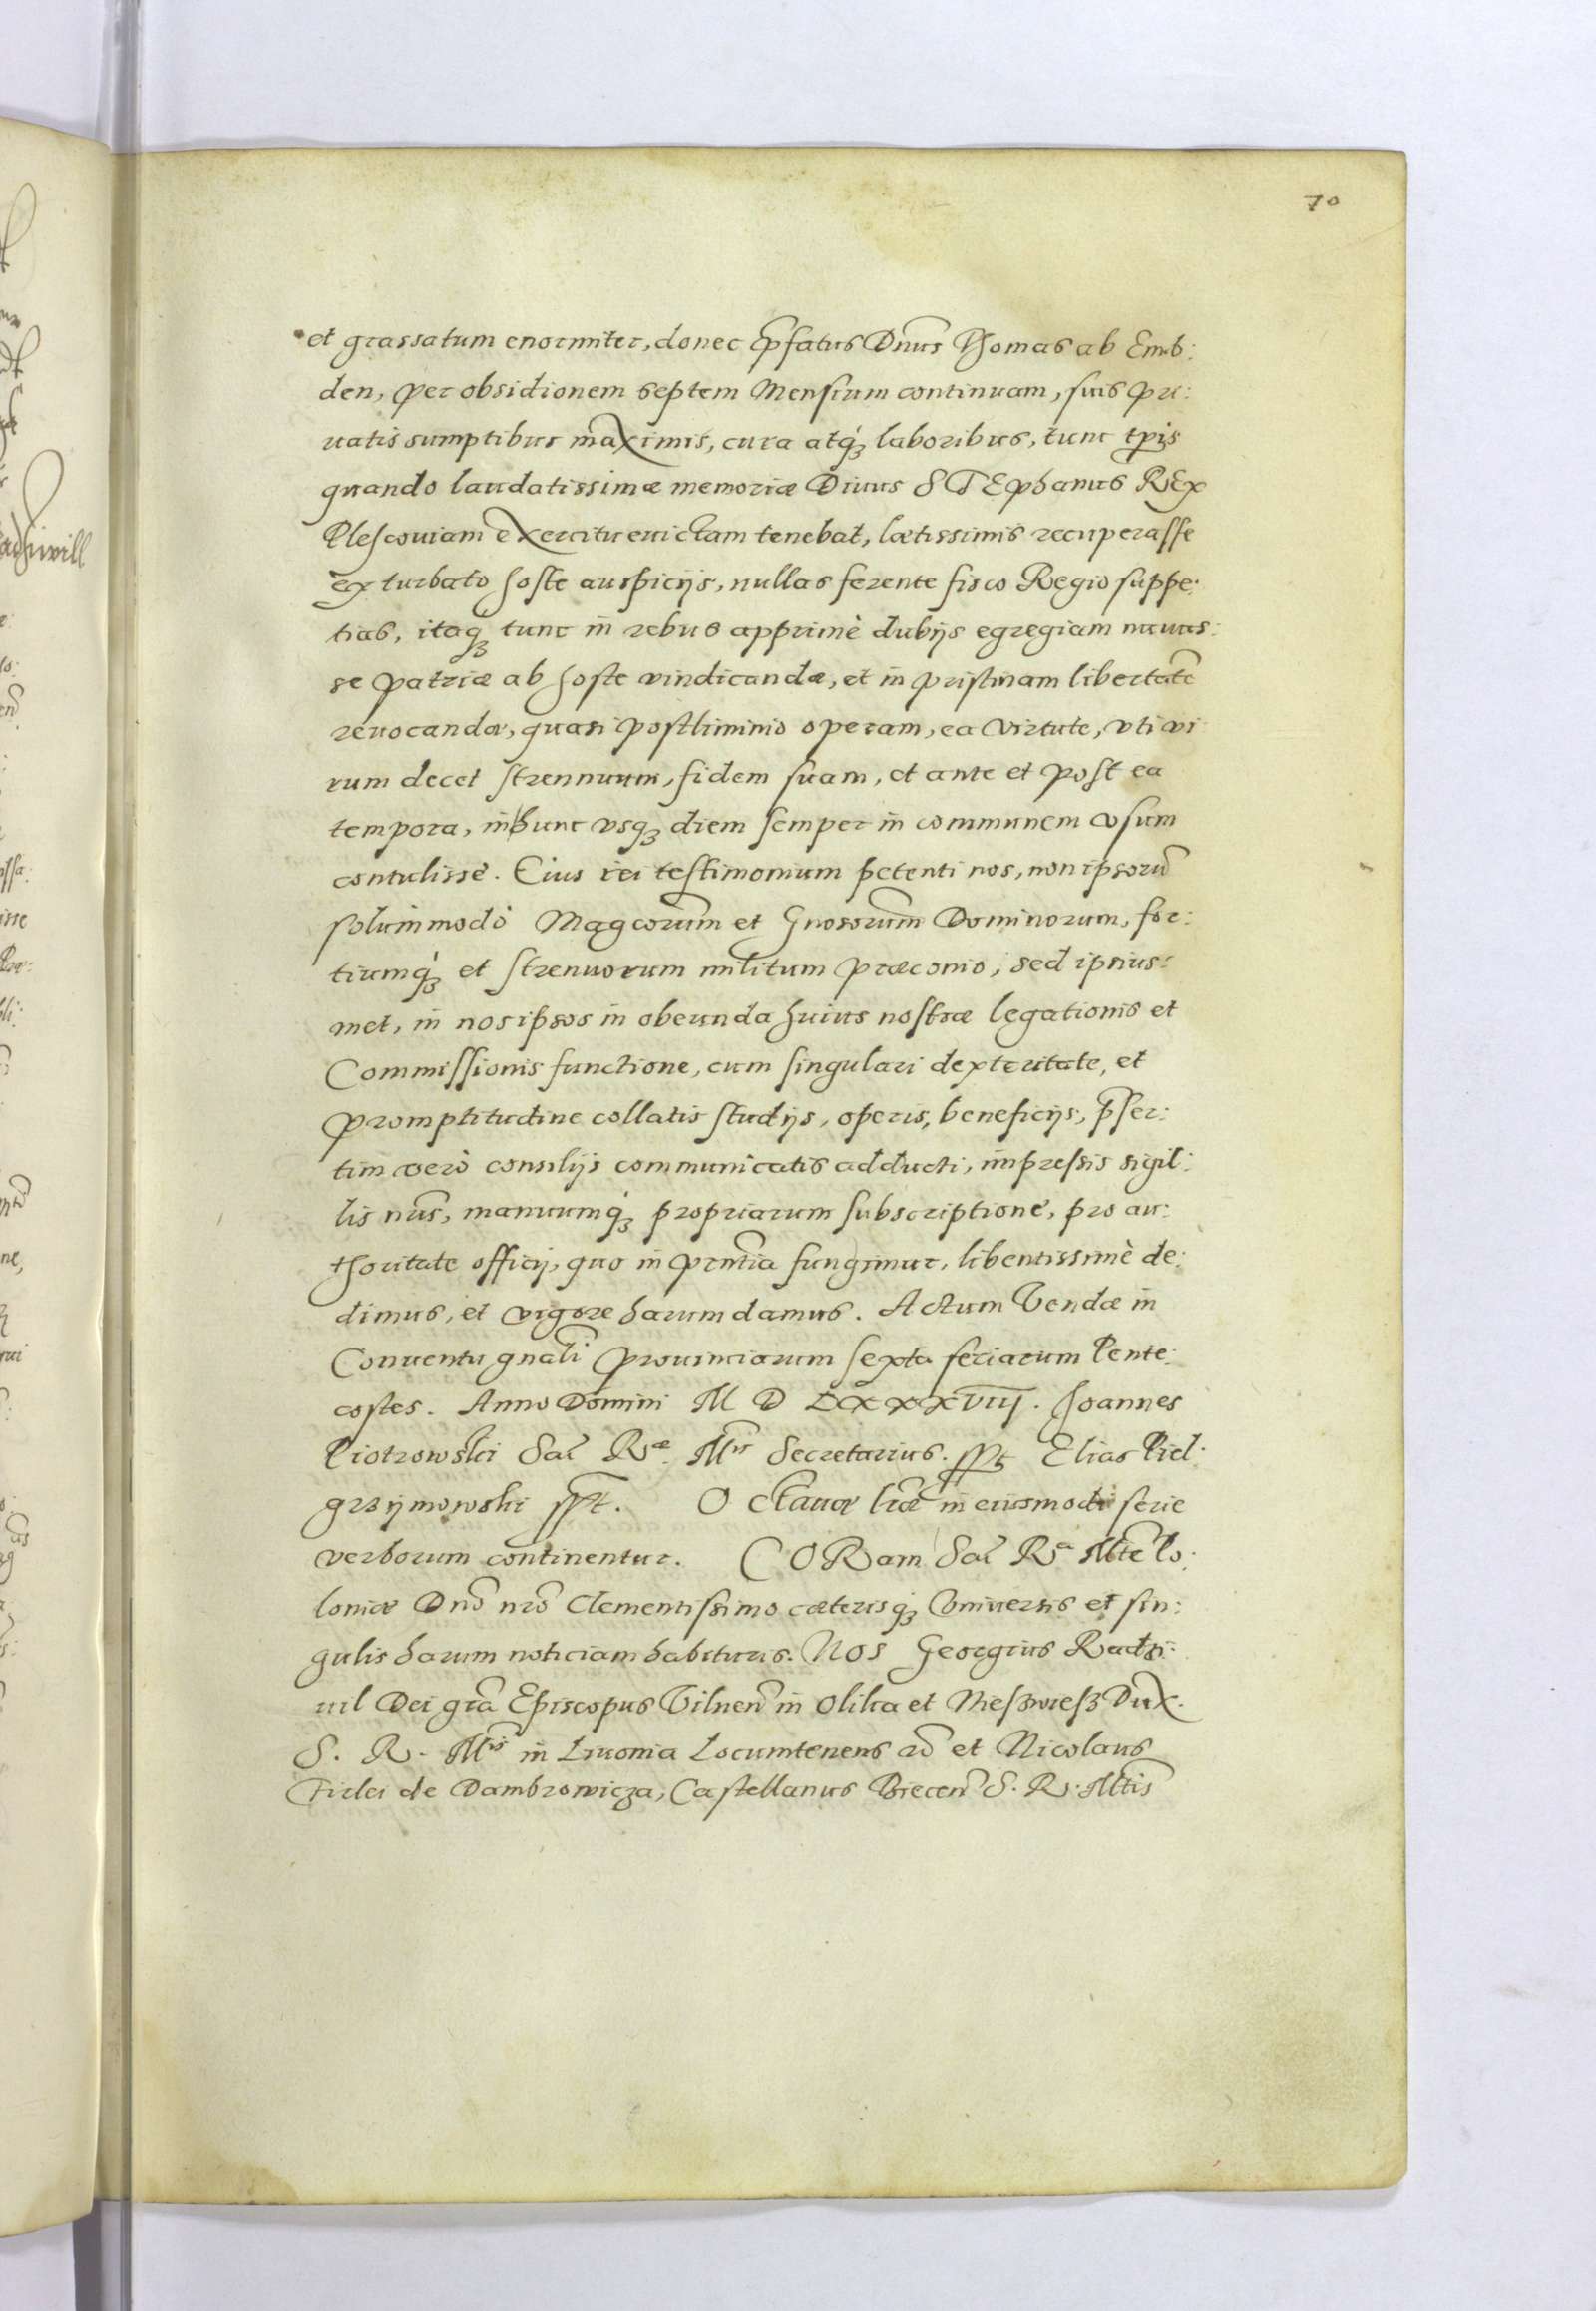 70
et grassatum enormiter, donec p̃fatus Dnus Thomas ab Emb:
den, per obsidionem septem Mensium continuam, suis pri:
uatis sumptibus maximis, cura atq́ꝫ laboribus, tunc tp̃is
quando laudatissimæ memoriæ Diuus STEphanus REx
Plescouiam exercitu euictam tenebat, lætissimis recuperasse
exturbato hoste auspicijs, nullas ferente fisco Regio suppe:
tias, itaqꝫ tunc in rebus apprimè dubijs egregiam nauas:
se patriæ ab hoste vindicandæ, et in pristinam libertatẽ
reuocandæ, quasi postliminio operam, ea virtute, vti vi
rum decet strennuum, fidem suam, et ante et post ea
tempora, in hunc vsqꝫ diem semper in communem vsum
contulisse. Eius rei testimonium petenti nos, non ipsorũ
solummodò Magcorum̃ et Gnosorum̃ Dominorum, for:
tiumq́ꝫ et strenuorum militum præconio, sed ipsius:
met, in nos ipsos in obeunda huius nostræ legationis et
Commissionis functione, cum singulari dexteritate, et
promptitudine collatis studijs, operis, beneficijs, p̃ser:
tim verò consilijs communicatis adducti, impressis sigil:
lis nr̃is, manuumq́ꝫ propriarum subscriptione, pro au:
thoritate officij, quo in prntĩa fungimur, libentissimè de:
dimus, et vigore harum damus. Actum Vendæ in
Conuentu gnalĩ Prouinciarum sexta feriarum Pente:
costes. Anno Domini M D LXXXVIII. Joannes
Piotrowski Sac̃ Ræ. Mtis Secretarius. sspt Elias Piel:
grzijmowski sspt. Octauæ lr̃æ in eiusmodi serie
verborum continentur. CORam Sac̃ Ra Mtẽ Po:
loniæ Dnõ nrõ Clementissimo cæterisq́ꝫ Vniuersis et sin:
gulis harum noticiam habituris. Nos Georgius Radzi:
uil Dei grã Episcopus Vilneñ in Olika et Nießwieß Dux.
S. R. Mtis in Liuonia Locumtenens ac̃ et Nicolaus
Firlei de Dambrowicza, Castellanus Bieceñ S. R. Mtis̃